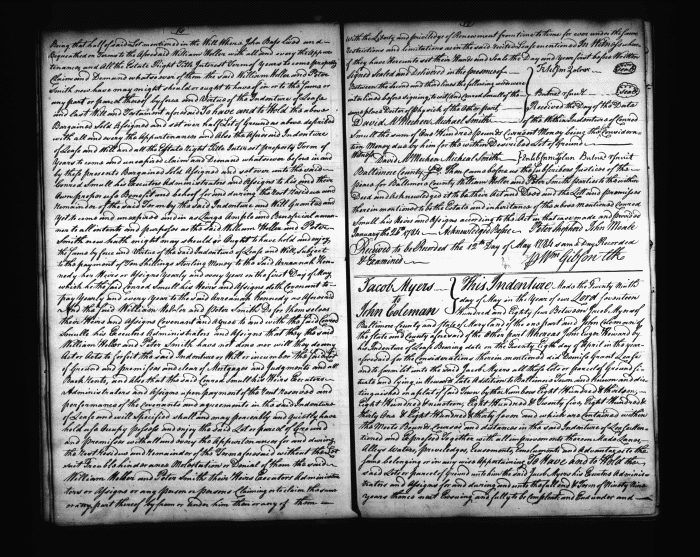 Being that half of said Lot mentioned in the Will Where John Bass lived and
Bequeathed on Terms to the Aforesaid William Hellen with all and every the Appur
tenances and all the Estate Right Title Interest Term of Years to come property
Claim and Demand whatsoever of them the said William Hellen and Peter
Smith now have may might should or ought to have of in or to the same or
any part or parcel thereof by force and Virtue of the Indenture of Lease
and Last Will and Testament aforesaid To have and to Hold the above
Bargained Sold Assigned and set over half Lot of Ground as above described
with all and every the Appurtenances and Also the aforesaid Indenture
of Lease and Will and all the Estate Right Title Interest property Term of
Years to come and unexpired claim and Demand whatsoever before in and
by these presents Bargained Sold Assigned and set over unto the said
Conrad Small his Executors Administrators and Assigns to his and their
Own proper use Benefit and behoof for and during the Rest Residue and
Remainder of the said Term by the said Indenture and Will Granted and
Yet to come and unexpired and in as Large Ample and Beneficial manner
to all intents and purposes as the said William Hellen and Peter
Smith now hath might may should or Ought to have held and enjoy
the same by force and Virtue of the said Indenture of Lease and Will Subject
to the payment of Ten Shillings Sterling Money to the said Hannah Ken
nedy her Heirs or Assigns Yearly and every Year on the first Day of May
which he the said Conrad Small his Heirs and Assigns doth Covenant to
pay Yearly and every Year to the said Hannah Kennedy as aforesaid
And the said William Hellen and Peter Smith Do for themselves
their Heirs and Assigns Covenant and agree to and with the said Conrad
Small his Executors Administrators and Assigns that they the said
William Hellen and Peter Smith have not done nor will they do any
Act or Acts to forfeit the said Indenture or Will or incumber the said Lot
of Ground and premises and clear of Mortgages and Judgments and all
Back Rents, and Also that the said Conrad Small his Heirs Executors
Administrators and Assigns upon payment of the Rent Reserved and
performance of the Covenants and agreements in the said Indenture
of Lease and will Specified shall and may peaceably and Quietly have
hold use Occupy possess and enjoy the said Lot or parcel of Ground
and premises with all and every the appurtenances for and during
the Rest Residue and Remainder of the Term aforesaid without the Let
suit Trouble hinderance Molestation or Denial of them the said
William Hellen and Peter Smith their Heirs Executors Adminis
trators or Assigns or any person or persons Claiming or to claim the same
or any part thereof by from or under him them or any of them
With the Liberty and priviledge of Renewment from time to time for ever under the same
restrictions and limitations as in the said recited Lease mentioned In Witness whereof
they have Hereunto set their Hands and Seals the Day and Year first before Written
Signed Sealed and Delivered in the presence of
Between the
David McMechen Michael Smith
Received the Day of the Date
of the within Indenture of Conrad
Small the sum of One Hundred pounds Current Money being the Considera
tion Money due by him for the within Described Lot of Ground
David McMechen Micheal Smith
Baltimore County Then came before us the Subscribers Justices of the
peace for Baltimore County William Hellen and Peter Smith parties to the within
Deed and Acknowledged it to be their Act and Deed and the Lott and premises
therein mentioned to be the Estate and inheritance of the above mentioned Conrad
Small his Heirs and Assigns according to the Act in that case made and provided
January the 26th 1784 Acknowledged before Peter Shepherd John Moale
Received to be Recorded the 12th Day of May 1784 same day Recorded
& Examined
Wm Gibson Clk
Jacob Myers
to
John Coleman
This Indenture Made the Twenty Ninth
day of May in the Year of our Lord Seventeen
Hundred and Eighty four Between Jacob Myers of
Baltimore County and State of Maryland of the one part and John Coleman of
the State and County foresaid of the Other part Whereas John Eager Howard by
his Indenture of Lease Bearing date on the Twenty Eigth day of April in the year
foresaid for the Considerations therein mentioned did Demise Grant Lease
and to farm let unto the said Jacob Myers all those Lots or parcels of Ground si
tuate and lying in Howards Late Addition to Baltimore Town and known and dis
tinguished on a plat of said Town by the numbers Eight Hundred &
Eight Hundred & Eight Hundred & Twenty five Eight Hundred &
thirty One & Eight Hundred & thirty seven and which are contained within
the Metes Bounds Courses and distances in the said Indenture of Lease men
tioned and Expressed Together with all improvements thereon Made Lanes
Alleys Waters, previledges, Easements, Emoluments and Advantages to the
same belonging or in any wise appertaining To Have and to Hold the
said Lots or parcels of Ground unto him the said Jacob Myers his Executors Adminis
trators and Assigns for and during and unto the full end & Term of Ninety Nine
Years thence next Ensuing and fully to be compleat and Ended under and